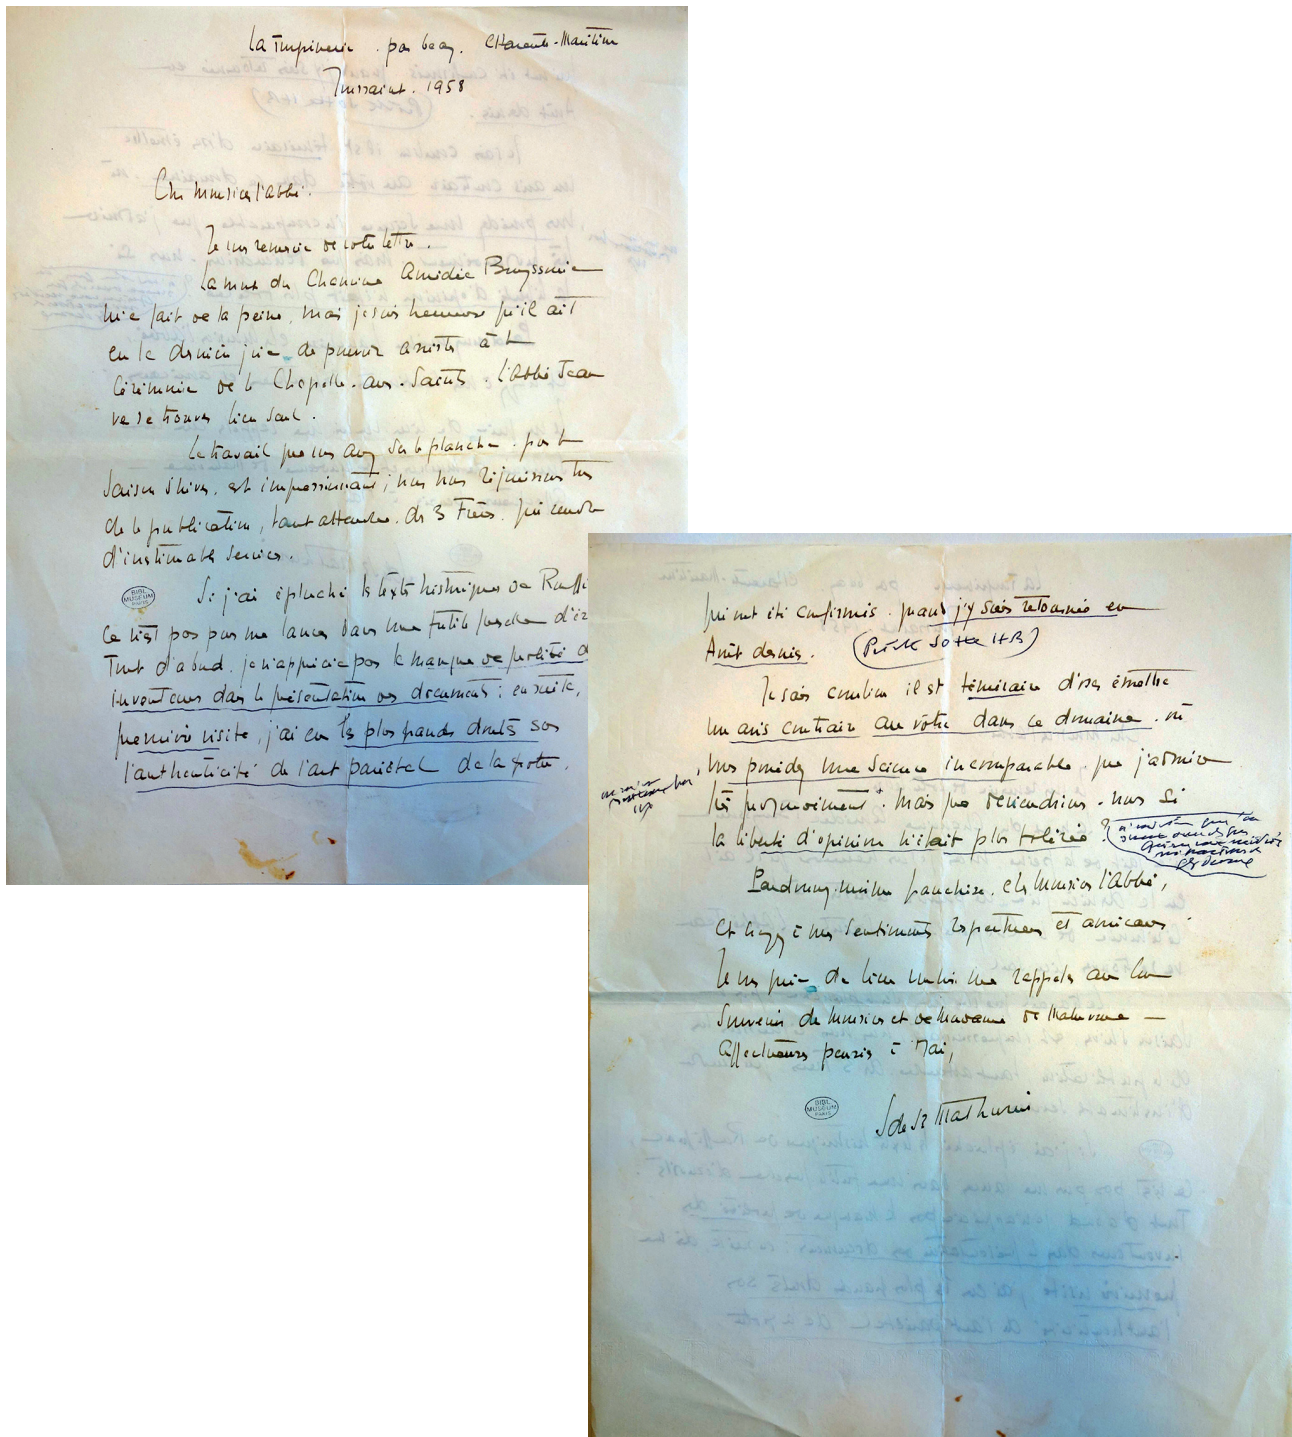 La Pimpinerie . par Cozes . Charente-Maritime
Toussaint . 1958
Cher Monsieur l'Abbé .
Je vous remercie de votre lettre .
La mort du Chanoine Amédée Bouyssonie
me fait de la peine, mais je suis heureuse qu'il ait
eu la dernière joie de pouvoir assister à la
Cérémonie de la Chapelle-aux-Saints . l'Abbé Jean
va se trouver bien seul .
Le travail que vous avez sur la planche . pour la
saison d'hiver . est impressionnant ; nous nous réjouissons tous
de la publication, tant attendue . des 3 Frères . qui rendra
d'inestimables services .
BIBL
MUSEUM
PARIS
Si j'ai épluché les textes historiques de Rouffi
ce n'est pas pour me lancer dans une futile
Tout d'abord . je n'apprécie pas le manque de probité d
inventeurs dans la présentation des documents ; ensuite,
première visite, j'ai eu les plus grands doutes sur
l'authenticité de l'art pariétal de la grotte .
qui ont été confirmés . quand j'y suis retournée en
Août dernier . (
Je sais combien il est téméraire d'oser émettre
un avis contraire au vôtre dans ce domaine . où
vous possédez une science incomparable . que j'admire
très profondément . mais que deviendrions-nous si
la liberté d'opinion n'était plus tolérée ?
Pardonnez-moi ma franchise, cher Monsieur l'Abbé,
et croyez à mes sentiments respectueux et amicaux
Je vous prie de bien vouloir me rappeler au bon
souvenir de Monsieur et de Madame de
Affectueuses pensées à
BIBL
MUSEUM
PARIS
S de St Mathurin